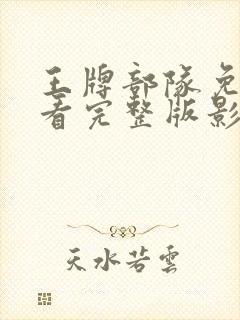 王牌部队免
看完整版影
天水若雲